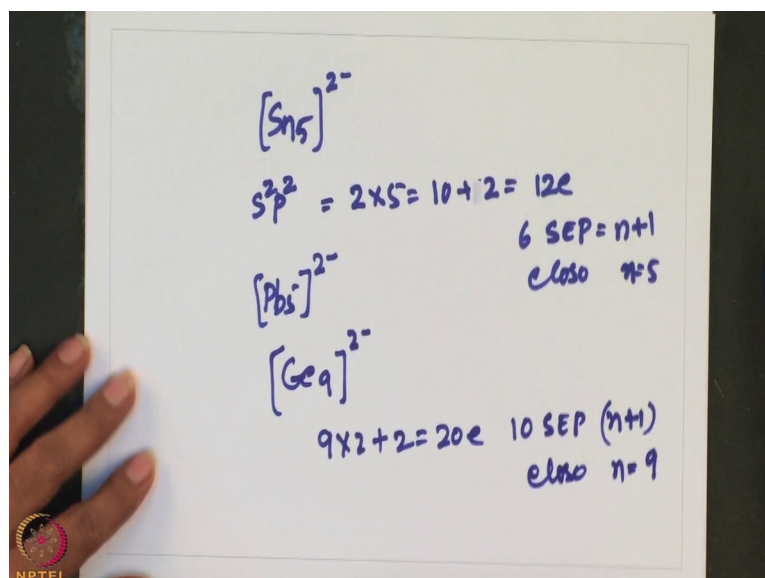 [Sn5]²⁻
s²p² = 2×5 = 10 + 2 = 12e
6 SEP = n+1
closo n=5
[Pb5]²⁻
[Ge9]²⁻
9×2+2 = 20e 10 SEP (n+1)
closo n=9
NPTEL